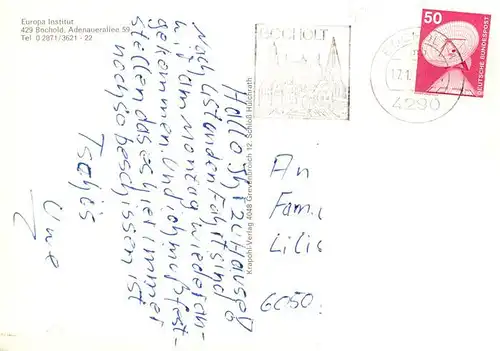 Europa Institut
429 Bocholt, Adenauerallee 59
Tel 0 2871/3621 - 22
BOCHOLT
50
DEUTSCHE BUNDESPOST
4290
Hallo Ihr zu Hause
Nach 4 Stunden Fahrt sind
wir am Montag wieder an-
gekommen und ich muß fest-
stellen das es hier immer
noch so beschissen ist
Tschüs
Uwe
Krapohl-Verlag 4048 Grevenbroich 12, Schloß Hülchrath
An
Fami
Lilie
6050